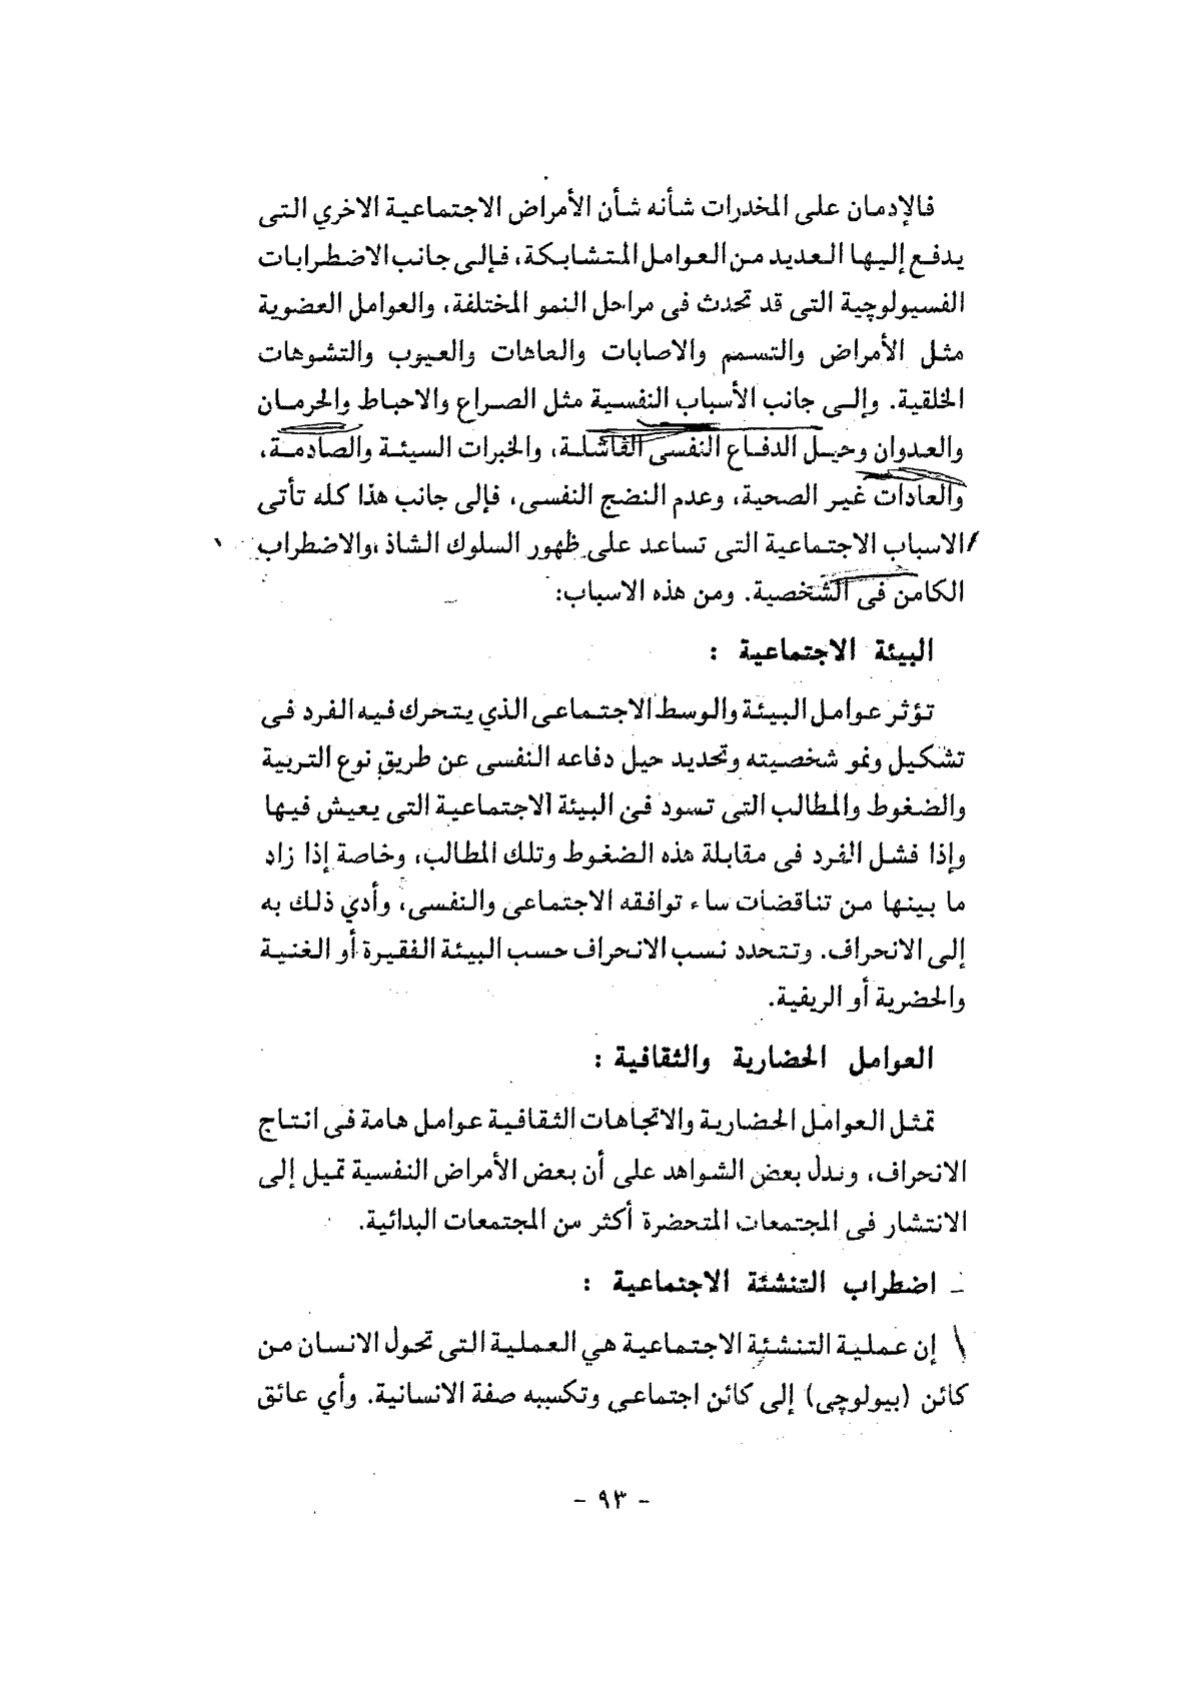 فالإدمان على المخدرات شأنه شأن الأمراض الاجتماعية الاخري التى
يدفع إليها العديد من العوامل المتشابكة، فإلى جانب الاضطرابات
الفسيولوچية التى قد تحدث فى مراحل النمو المختلفة، والعوامل العضوية
مثل الأمراض والتسمم والاصابات والعاهات والعيوب والتشوهات
الخلقية. وإلى جانب الأسباب النفسية مثل الصراع والاحباط والحرمان
والعدوان وحيل الدفاع النفسى الفاشلة، والخبرات السيئة والصادمة،
والعادات غير الصحية، وعدم النضج النفسى، فإلى جانب هذا كله تأتى
الاسباب الاجتماعية التى تساعد على ظهور السلوك الشاذ ،والاضطراب
الكامن فى الشخصية. ومن هذه الاسباب:
البيئة الاجتماعية :
تؤثر عوامل البيئة والوسط الاجتماعى الذي يتحرك فيه الفرد فى
تشكيل ونمو شخصيته وتحديد حيل دفاعه النفسى عن طريق نوع التربية
والضغوط والمطالب التى تسود فى البيئة الاجتماعية التى يعيش فيها
وإذا فشل الفرد فى مقابلة هذه الضغوط وتلك المطالب، وخاصة إذا زاد
ما بينها من تناقضات ساء توافقه الاجتماعى والنفسى، وأدي ذلك به
إلى الانحراف. وتتحدد نسب الانحراف حسب البيئة الفقيرة أو الغنية
والحضرية أو الريفية.
العوامل الحضارية والثقافية :
تمثل العوامل الحضارية والاتجاهات الثقافية عوامل هامة فى انتاج
الانحراف، وتدل بعض الشواهد على أن بعض الأمراض النفسية تميل إلى
الانتشار فى المجتمعات المتحضرة أكثر من المجتمعات البدائية.
ـ اضطراب التنشئة الاجتماعية :
إن عملية التنشئة الاجتماعية هي العملية التى تحول الانسان من
كائن (بيولوچى) إلى كائن اجتماعى وتكسبه صفة الانسانية. وأي عائق
- ٩٣ -